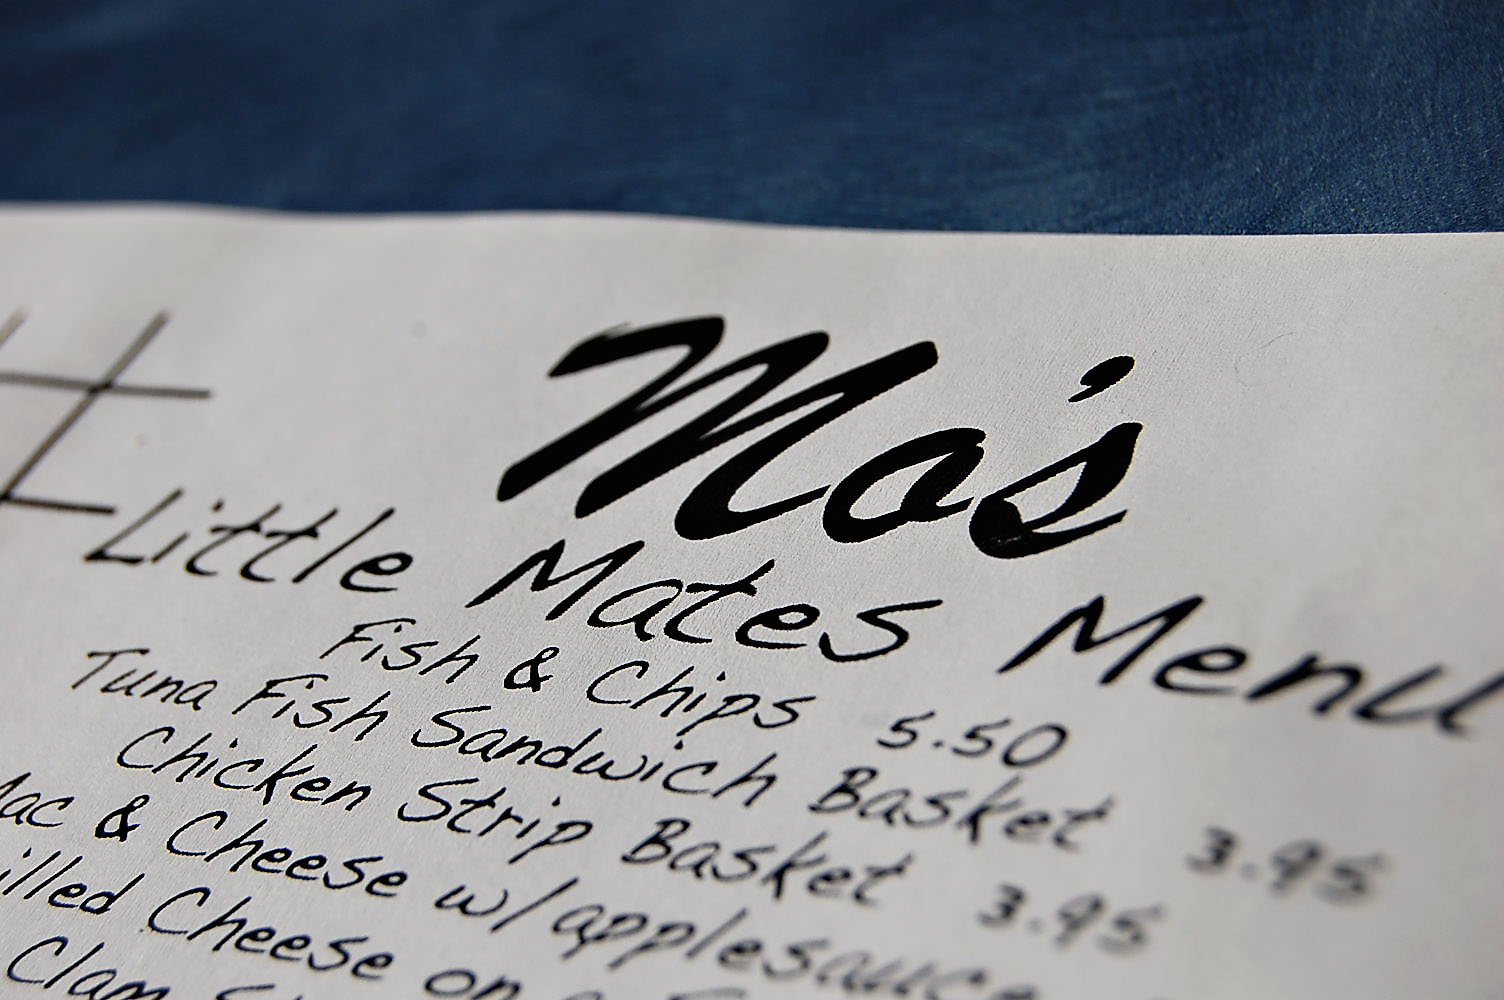 #
Mo's
Little Mates Menu
Fish & Chips 5.50
Tuna Fish Sandwich Basket 3.95
Chicken Strip Basket 3.95
& Cheese w/applesauce
Cheese on
Clam